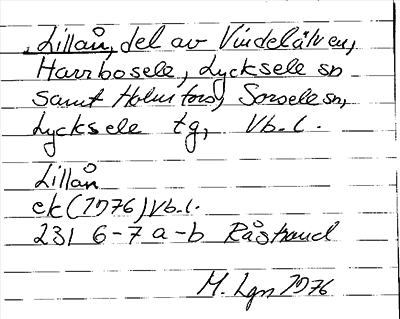 Lillån, del av Vindelälven,
Harrbosele, Lycksele sn
samt Holmfors, Sorsele sn,
Lycksele tg, Vb. l.
Lillån
ek (1976) Vb. l.
231 6-7 a-b Råstrand
M. Lgn 1976